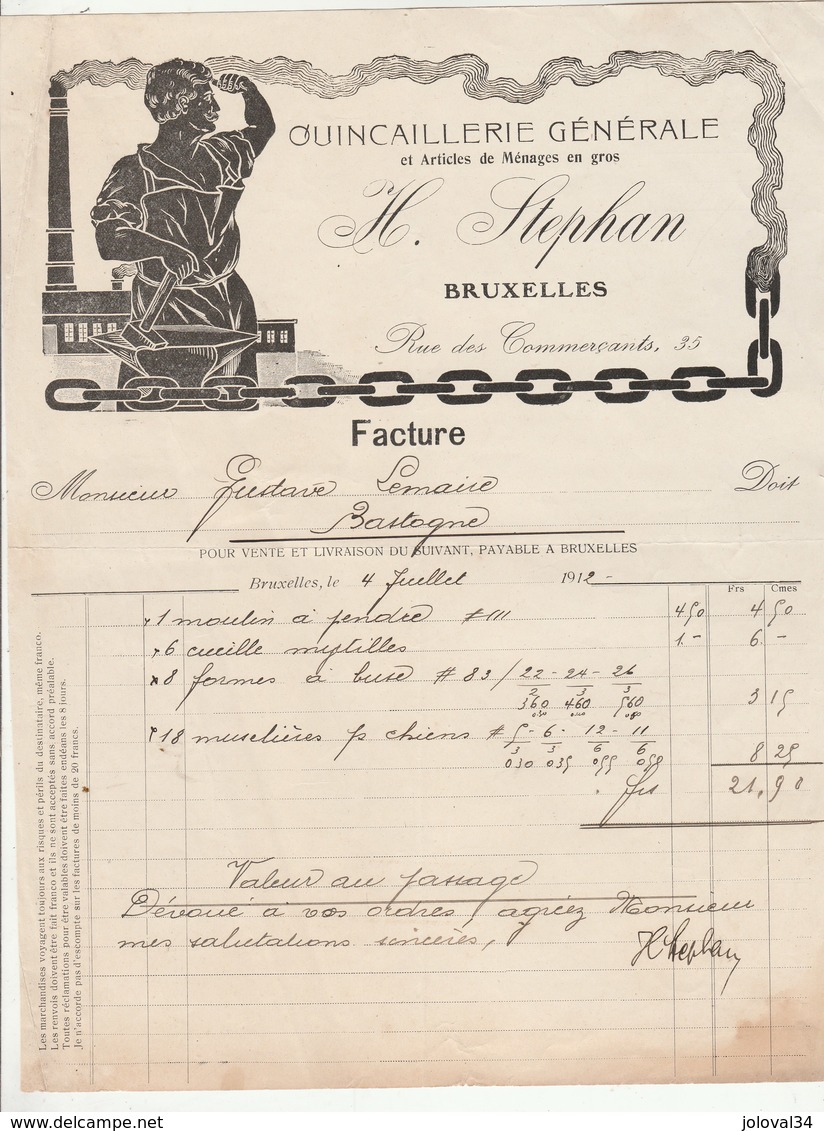 QUINCAILLERIE GÉNÉRALE
et Articles de Ménages en gros
H. Stephan
BRUXELLES
Rue des Commerçants, 35
Facture
Monsieur Gustave Lemaire Doit
Bastogne
POUR VENTE ET LIVRAISON DU SUIVANT, PAYABLE A BRUXELLES
Bruxelles, le 4 Juillet 1912 -
Frs Cmes
1 moulin à fendre # 111 4 50 4 50
6 cueille myrtilles 1.- 6 -
8 formes à buse # 83 / 22 - 24 - 26
2 3 3
360 460 560 3 15
18 muselières p chiens # 5 - 6 - 12 - 11
3 3 6 6
030 035 055 8 25
frs 21,90
Valeur au passage
Dévoué à vos ordres, agréez Monsieur
mes salutations sincères,
HStephan
Les marchandises voyagent toujours aux risques et périls du destinataire, même franco.
Les renvois doivent être fait franco et ils ne sont acceptés sans accord préalable.
Toutes réclamations pour être valables doivent être faites endéans les 8 jours.
Je n'accorde pas d'escompte sur les factures de moins de 20 francs.
joloval34